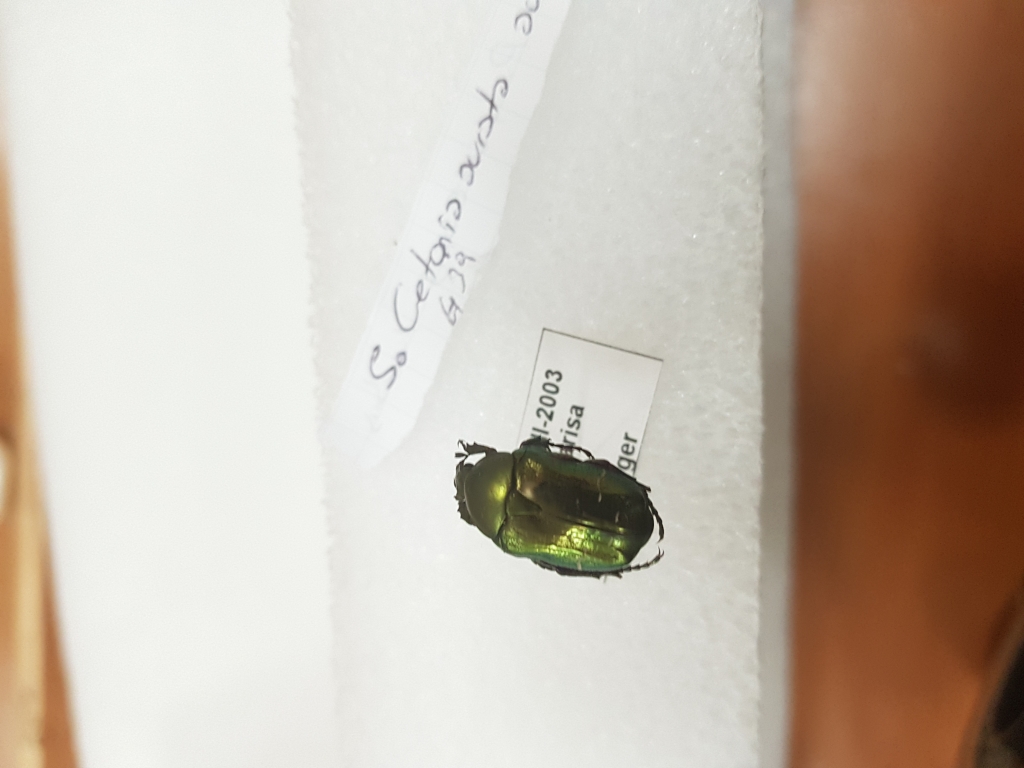 So Cetonia aurata
G39
II-2003
arisa
ger